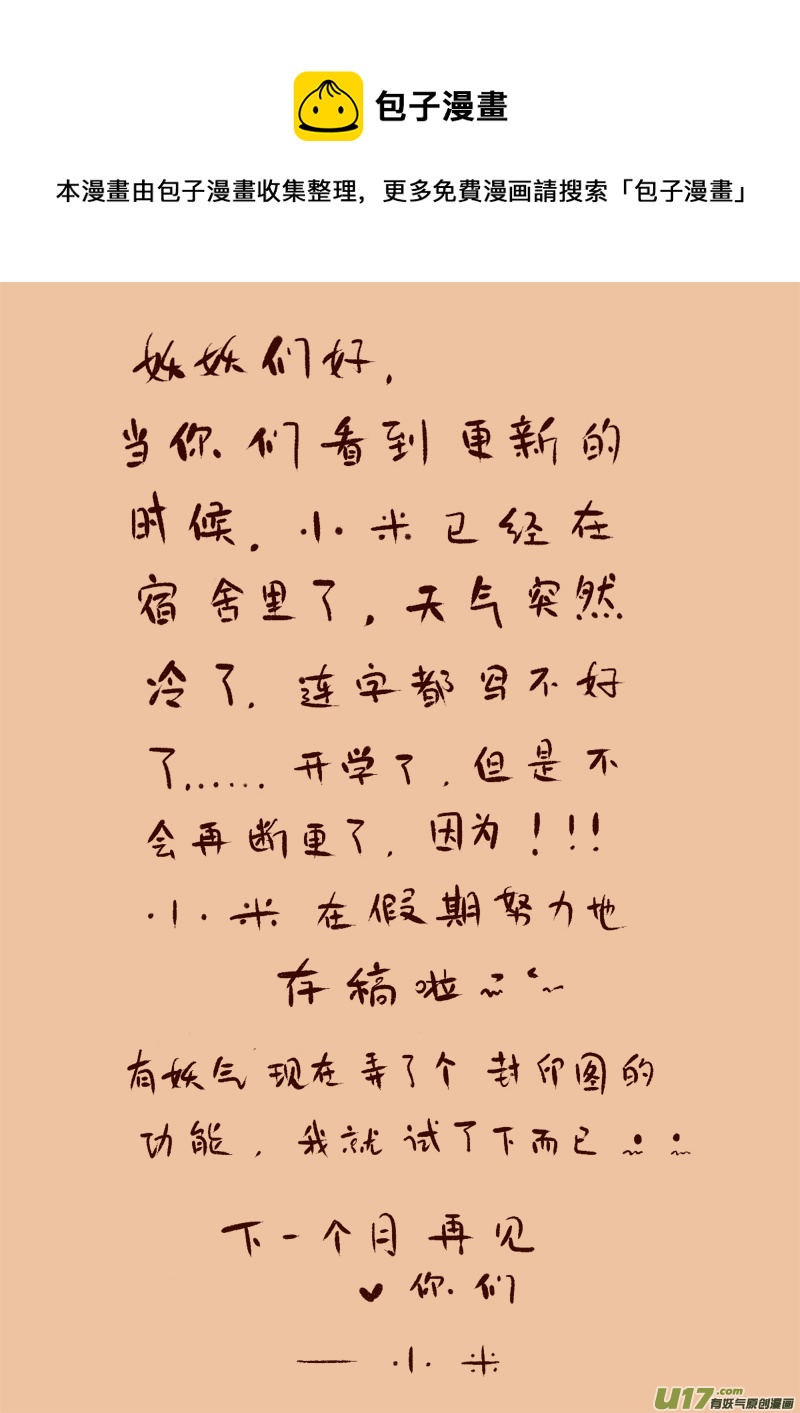 包子漫畫
本漫畫由包子漫畫收集整理，更多免費漫画請搜索「包子漫畫」
妖妖们好，
当你们看到更新的
时候，小米已经在
宿舍里了，天气突然
冷了，连字都写不好
了……开学了，但是不
会再断更了，因为！！！
小米在假期努力地
存稿啦~~
有妖气现在弄了个封印图的
功能，我就试了下而已~~
下一个月再见
♥你们
——小米
U17.com
有妖气原创漫画